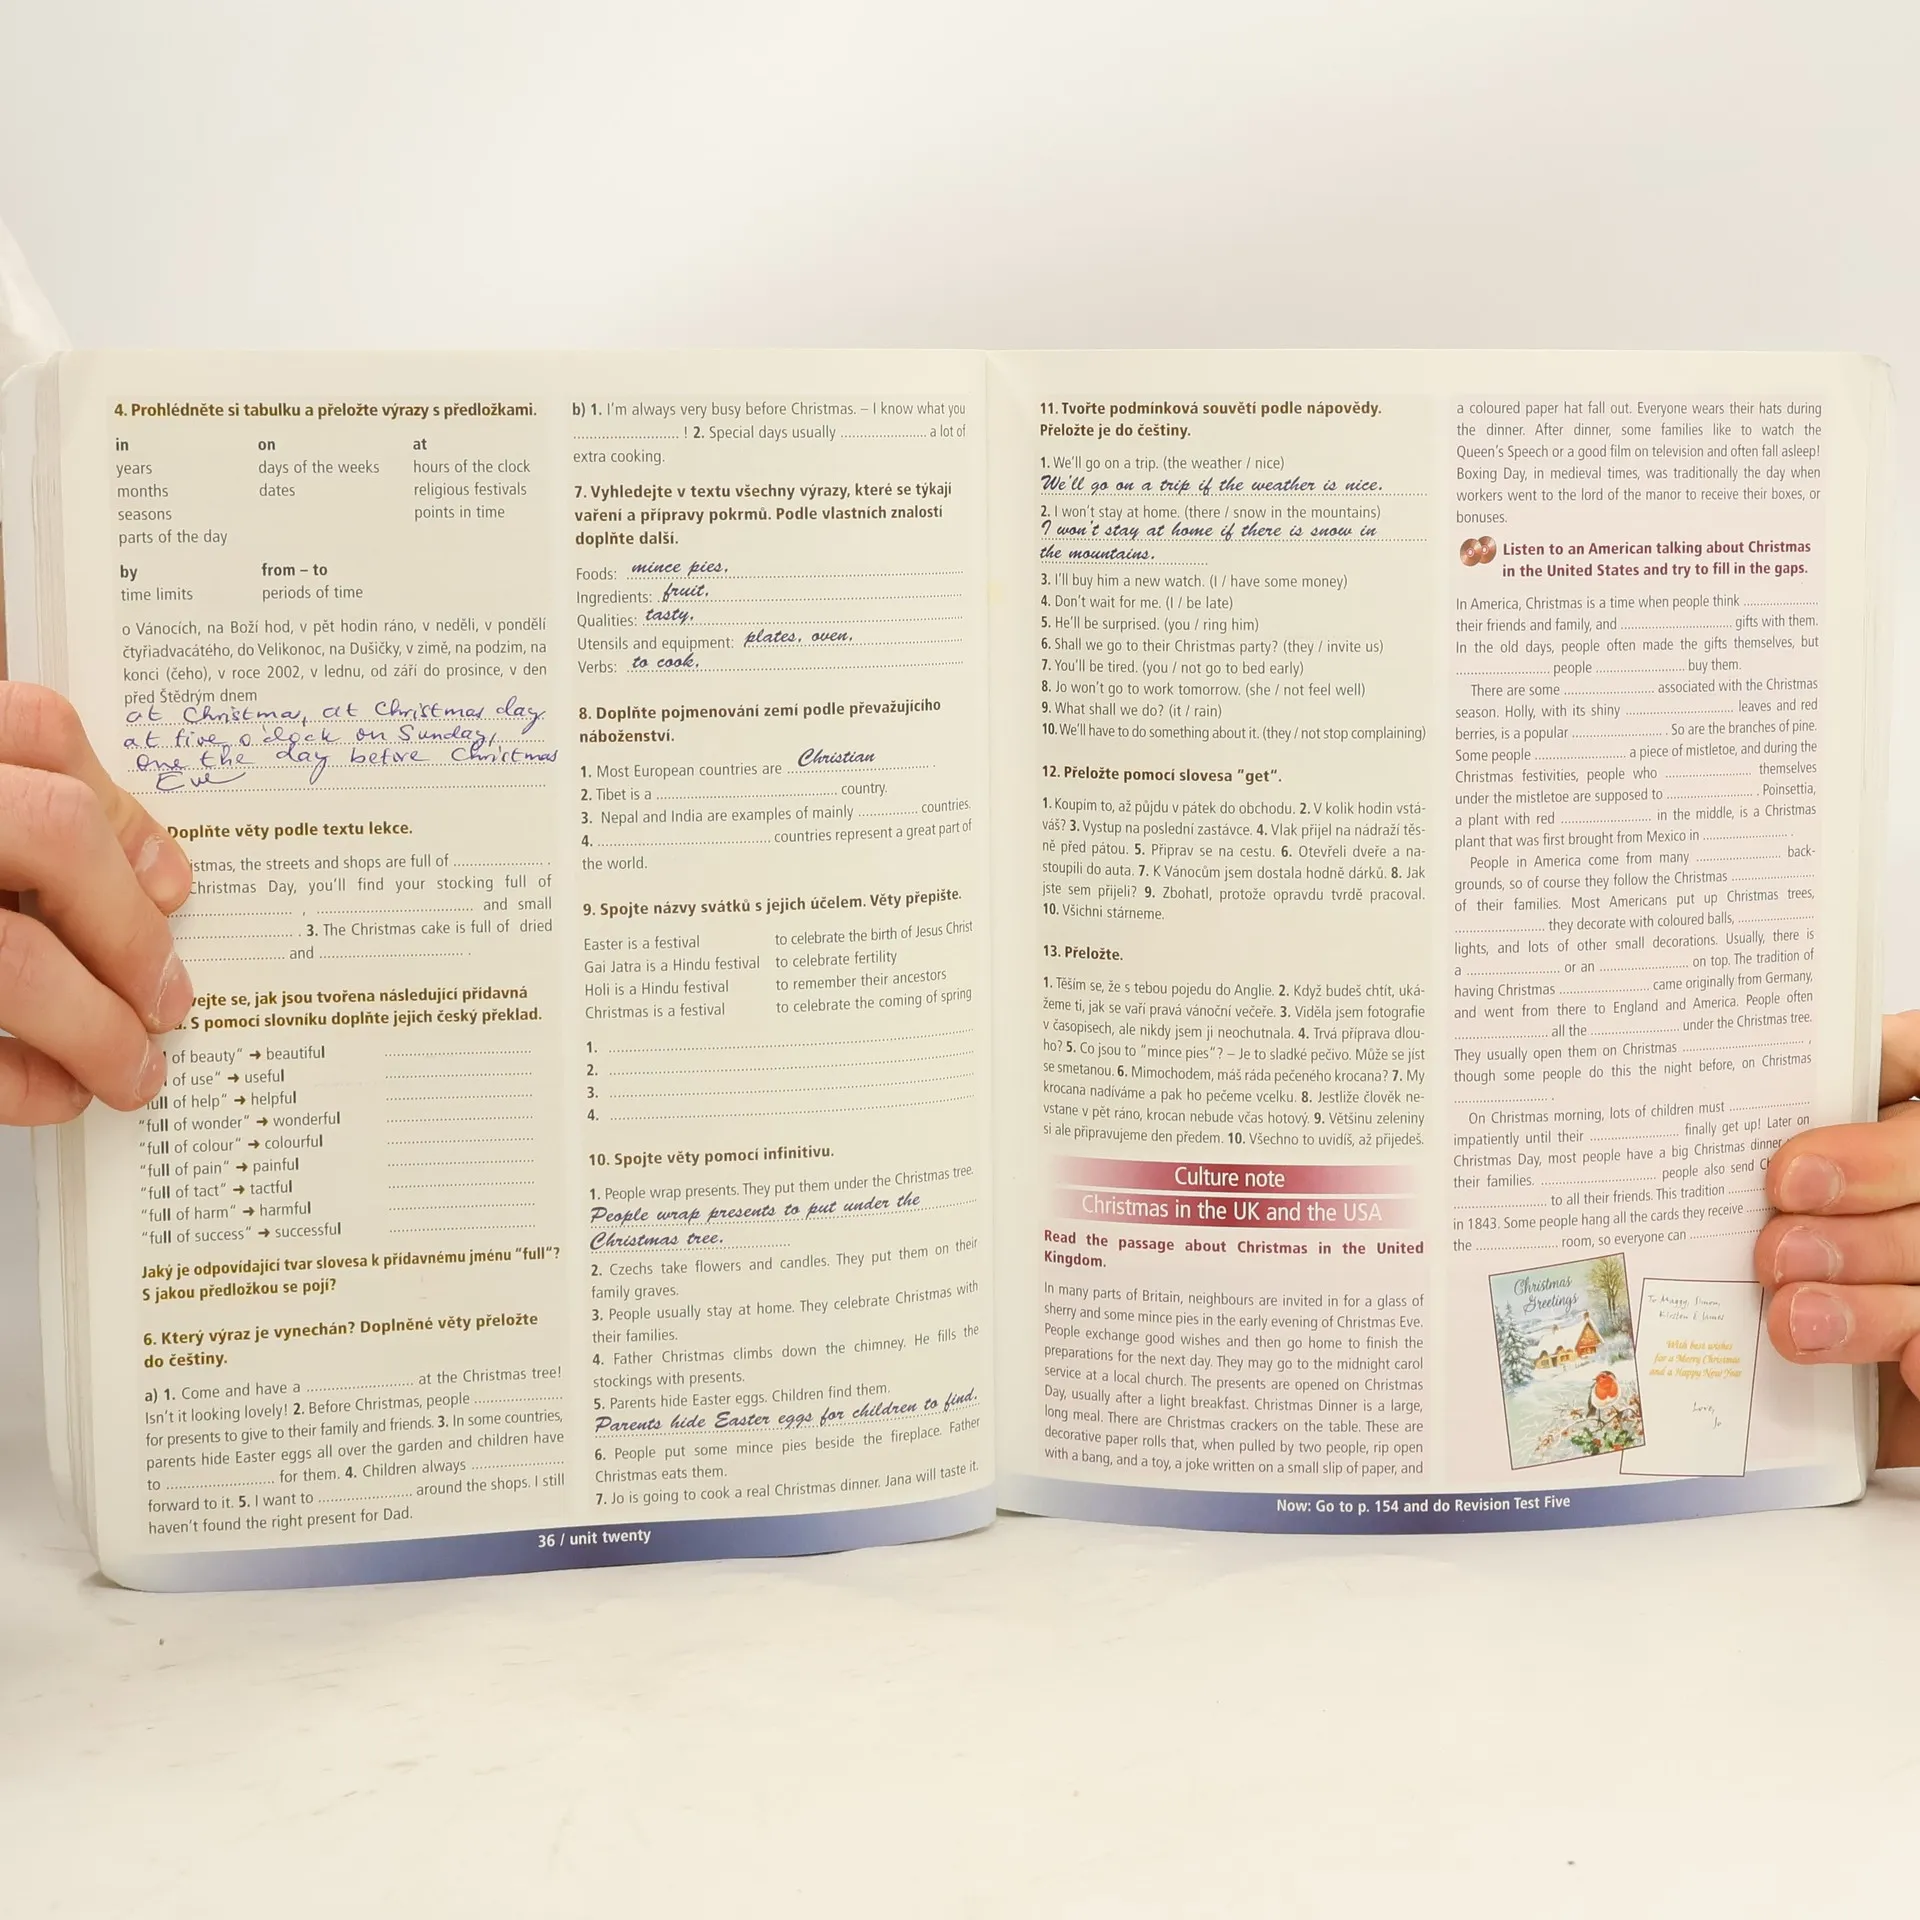 4. Prohlédněte si tabulku a přeložte výrazy s předložkami.
in on at
years days of the weeks hours of the clock
months dates religious festivals
seasons points in time
parts of the day
by from – to
time limits periods of time
o Vánocích, na Boží hod, v pět hodin ráno, v neděli, v pondělí
čtyřiadvacátého, do Velikonoc, na Dušičky, v zimě, na podzim, na
konci (čeho), v roce 2002, v lednu, od září do prosince, v den
před Štědrým dnem
at Christmas, at Christmas day
at five o'clock on Sunday,
one the day before Christmas
Eve
Doplňte věty podle textu lekce.
istmas, the streets and shops are full of .................... .
Christmas Day, you'll find your stocking full of
.................... , .................... and small
.................... . 3. The Christmas cake is full of dried
.................... and .................... .
vejte se, jak jsou tvořena následující přídavná
. S pomocí slovníku doplňte jejich český překlad.
of beauty" ➔ beautiful ....................
of use" ➔ useful ....................
full of help" ➔ helpful ....................
"full of wonder" ➔ wonderful ....................
"full of colour" ➔ colourful ....................
"full of pain" ➔ painful ....................
"full of tact" ➔ tactful ....................
"full of harm" ➔ harmful ....................
"full of success" ➔ successful ....................
Jaký je odpovídající tvar slovesa k přídavnému jménu "full"?
S jakou předložkou se pojí?
6. Který výraz je vynechán? Doplněné věty přeložte
do češtiny.
a) 1. Come and have a .................... at the Christmas tree!
Isn't it looking lovely! 2. Before Christmas, people ....................
for presents to give to their family and friends. 3. In some countries,
parents hide Easter eggs all over the garden and children have
to .................... for them. 4. Children always ....................
forward to it. 5. I want to .................... around the shops. I still
haven't found the right present for Dad.
36 / unit twenty
b) 1. I'm always very busy before Christmas. – I know what you
.................... ! 2. Special days usually .................... a lot of
extra cooking.
7. Vyhledejte v textu všechny výrazy, které se týkají
vaření a přípravy pokrmů. Podle vlastních znalostí
doplňte další.
Foods: mince pies,
Ingredients: fruit,
Qualities: tasty,
Utensils and equipment: plates, oven,
Verbs: to cook,
8. Doplňte pojmenování zemí podle převažujícího
náboženství.
1. Most European countries are Christian .
2. Tibet is a .................... country.
3. Nepal and India are examples of mainly .................... countries.
4. .................... countries represent a great part of
the world.
9. Spojte názvy svátků s jejich účelem. Věty přepište.
Easter is a festival to celebrate the birth of Jesus Christ
Gai Jatra is a Hindu festival to celebrate fertility
Holi is a Hindu festival to remember their ancestors
Christmas is a festival to celebrate the coming of spring
1. ....................
2. ....................
3. ....................
4. ....................
10. Spojte věty pomocí infinitivu.
1. People wrap presents. They put them under the Christmas tree.
People wrap presents to put under the
Christmas tree.
2. Czechs take flowers and candles. They put them on their
family graves.
3. People usually stay at home. They celebrate Christmas with
their families.
4. Father Christmas climbs down the chimney. He fills the
stockings with presents.
5. Parents hide Easter eggs. Children find them.
Parents hide Easter eggs for children to find.
6. People put some mince pies beside the fireplace. Father
Christmas eats them.
7. Jo is going to cook a real Christmas dinner. Jana will taste it.
11. Tvořte podmínková souvětí podle nápovědy.
Přeložte je do češtiny.
1. We'll go on a trip. (the weather / nice)
We'll go on a trip if the weather is nice.
2. I won't stay at home. (there / snow in the mountains)
I won't stay at home if there is snow in
the mountains.
3. I'll buy him a new watch. (I / have some money)
4. Don't wait for me. (I / be late)
5. He'll be surprised. (you / ring him)
6. Shall we go to their Christmas party? (they / invite us)
7. You'll be tired. (you / not go to bed early)
8. Jo won't go to work tomorrow. (she / not feel well)
9. What shall we do? (it / rain)
10. We'll have to do something about it. (they / not stop complaining)
12. Přeložte pomocí slovesa "get".
1. Koupím to, až půjdu v pátek do obchodu. 2. V kolik hodin vstá-
váš? 3. Vystup na poslední zastávce. 4. Vlak přijel na nádraží těs-
ně před pátou. 5. Připrav se na cestu. 6. Otevřeli dveře a na-
stoupili do auta. 7. K Vánocům jsem dostala hodně dárků. 8. Jak
jste sem přijeli? 9. Zbohatl, protože opravdu tvrdě pracoval.
10. Všichni stárneme.
13. Přeložte.
1. Těším se, že s tebou pojedu do Anglie. 2. Když budeš chtít, uká-
žeme ti, jak se vaří pravá vánoční večeře. 3. Viděla jsem fotografie
v časopisech, ale nikdy jsem ji neochutnala. 4. Trvá příprava dlou-
ho? 5. Co jsou to "mince pies"? – Je to sladké pečivo. Může se jíst
se smetanou. 6. Mimochodem, máš ráda pečeného krocana? 7. My
krocana nadíváme a pak ho pečeme vcelku. 8. Jestliže člověk ne-
vstane v pět ráno, krocan nebude včas hotový. 9. Většinu zeleniny
si ale připravujeme den předem. 10. Všechno to uvidíš, až přijedeš.
Culture note
Christmas in the UK and the USA
Read the passage about Christmas in the United
Kingdom.
In many parts of Britain, neighbours are invited in for a glass of
sherry and some mince pies in the early evening of Christmas Eve.
People exchange good wishes and then go home to finish the
preparations for the next day. They may go to the midnight carol
service at a local church. The presents are opened on Christmas
Day, usually after a light breakfast. Christmas Dinner is a large,
long meal. There are Christmas crackers on the table. These are
decorative paper rolls that, when pulled by two people, rip open
with a bang, and a toy, a joke written on a small slip of paper, and
a coloured paper hat fall out. Everyone wears their hats during
the dinner. After dinner, some families like to watch the
Queen's Speech or a good film on television and often fall asleep!
Boxing Day, in medieval times, was traditionally the day when
workers went to the lord of the manor to receive their boxes, or
bonuses.
Listen to an American talking about Christmas
in the United States and try to fill in the gaps.
In America, Christmas is a time when people think ....................
their friends and family, and .................... gifts with them.
In the old days, people often made the gifts themselves, but
.................... people .................... buy them.
There are some .................... associated with the Christmas
season. Holly, with its shiny .................... leaves and red
berries, is a popular .................... . So are the branches of pine.
Some people .................... a piece of mistletoe, and during the
Christmas festivities, people who .................... themselves
under the mistletoe are supposed to .................... . Poinsettia,
a plant with red .................... in the middle, is a Christmas
plant that was first brought from Mexico in .................... .
People in America come from many .................... back-
grounds, so of course they follow the Christmas ....................
of their families. Most Americans put up Christmas trees,
.................... they decorate with coloured balls, ....................
lights, and lots of other small decorations. Usually, there is
a .................... or an .................... on top. The tradition of
having Christmas .................... came originally from Germany,
and went from there to England and America. People often
.................... all the .................... under the Christmas tree.
They usually open them on Christmas .................... ,
though some people do this the night before, on Christmas
.................... .
On Christmas morning, lots of children must ....................
impatiently until their .................... finally get up! Later on
Christmas Day, most people have a big Christmas dinner
their families. .................... people also send C
.................... to all their friends. This tradition ....................
in 1843. Some people hang all the cards they receive ....................
the .................... room, so everyone can ....................
Christmas
Greetings
To Maggy, Simon,
Kirsten & James
With best wishes
for a Merry Christmas
and a Happy New Year
Love,
Jo
Now: Go to p. 154 and do Revision Test Five